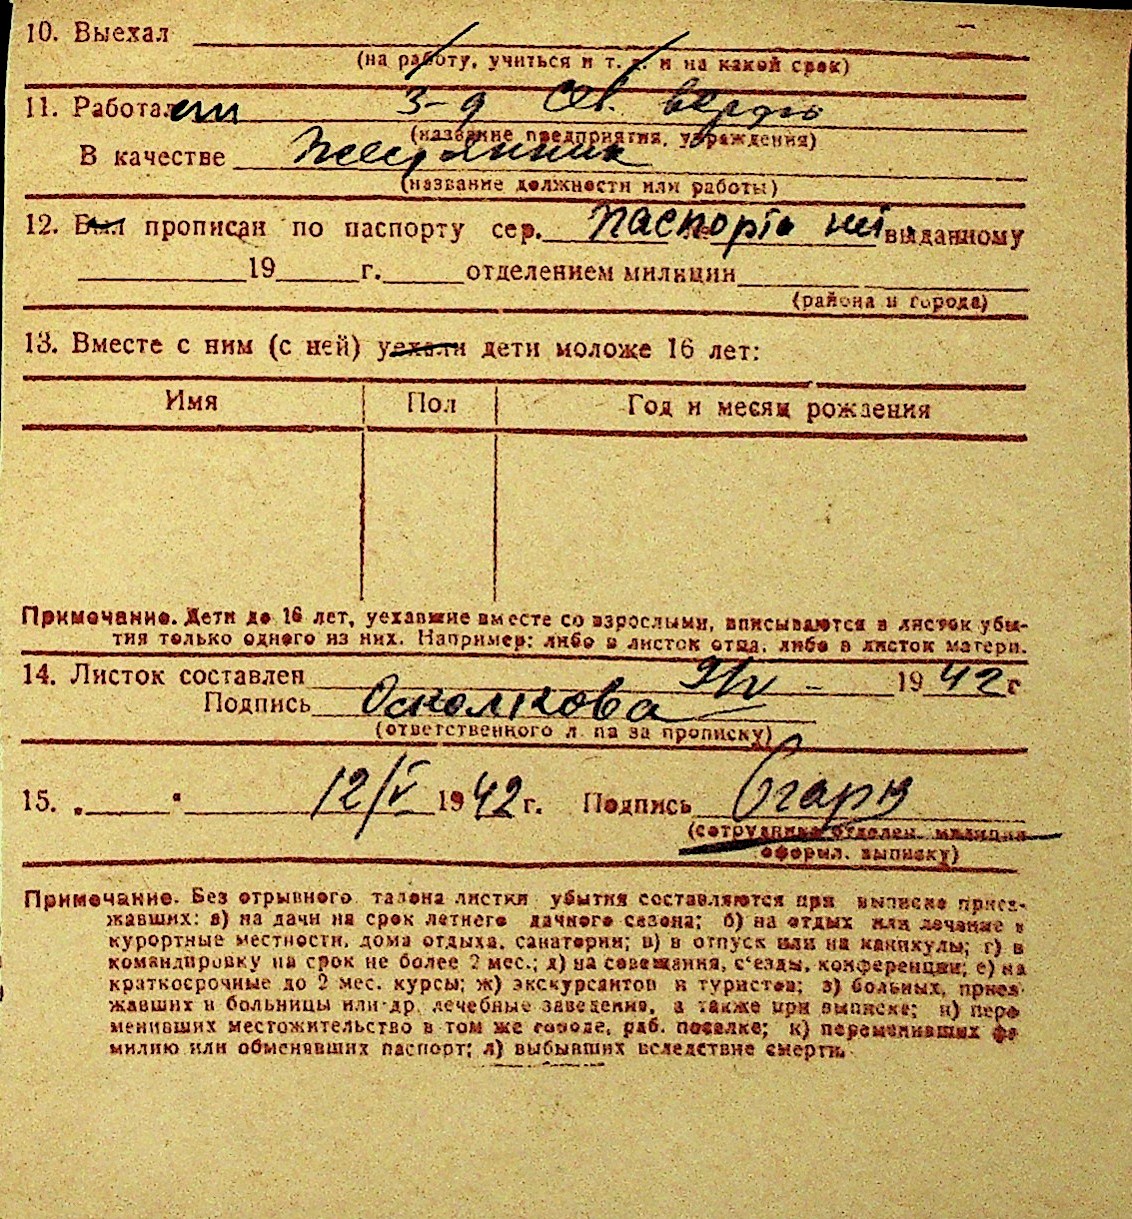 10. Выехал
(на работу, учиться и т. д. и на какой срок)
11. Работал з-д Сев. верфь
(название предприятия, учреждения)
В качестве Жестянник
(название должности или работы)
12. Был прописан по паспорту сер. паспорта нет выданному
19 г. отделением милиции
(района и города)
13. Вместе с ним (с ней) уехали дети моложе 16 лет:
Имя Пол Год и месяц рождения
Примечание. Дети до 16 лет, уехавшие вместе со взрослыми, вписываются в листок убы-
тия только одного из них. Например: либо в листок отца, либо в листок матери.
14. Листок составлен 9/IV - 1942 г
Подпись Осколкова
(ответственного л па за прописку)
15. „ " 12/V 1942 г. Подпись
(сотрудника отделен. милиции
оформ. выписку)
Примечание. Без отрывного талона листки убытия составляются при выписке приез-
жавших: а) на дачи на срок летнего дачного сезона; б) на отдых или лечение в
курортные местности, дома отдыха, санатории; в) в отпуск или на каникулы; г) в
командировку на срок не более 2 мес.; д) на совещания, с'езды, конференции; е) на
краткосрочные до 2 мес. курсы; ж) экскурсантов и туристов; з) больных, приез
жавших в больницы или др. лечебные заведения, а также при выписке; и) пере
менивших местожительство в том же городе, раб. поселке; к) переменивших фа
милию или обменявших паспорт; л) выбывших вследствие смерти.